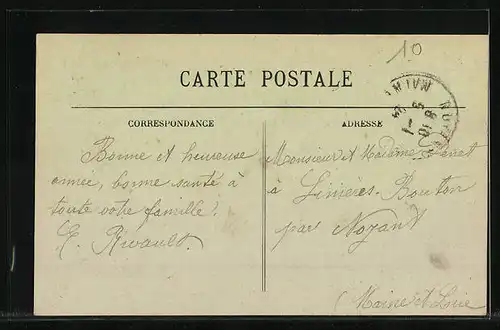 10
CARTE POSTALE
CORRESPONDANCE
Bonne et heureuse
année, bonne santé à
toute votre famille!
E. Rivault
ADRESSE
Monsieur et Madame
à Linières-Bouton
par Noyant
(Maine et Loire